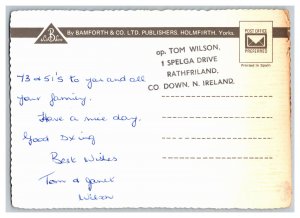 By BAMFORTH & CO. LTD. PUBLISHERS, HOLMFIRTH, Yorks.
POST OFFICE
PREFERRED
Printed in Spain
op. TOM WILSON,
1 SPELGA DRIVE
RATHFRILAND,
CO DOWN, N. IRELAND.
73 & 51's to you and all
your family.
Have a nice day.
Good Dxing
Best Wishes
Tom & Janet
Wilson